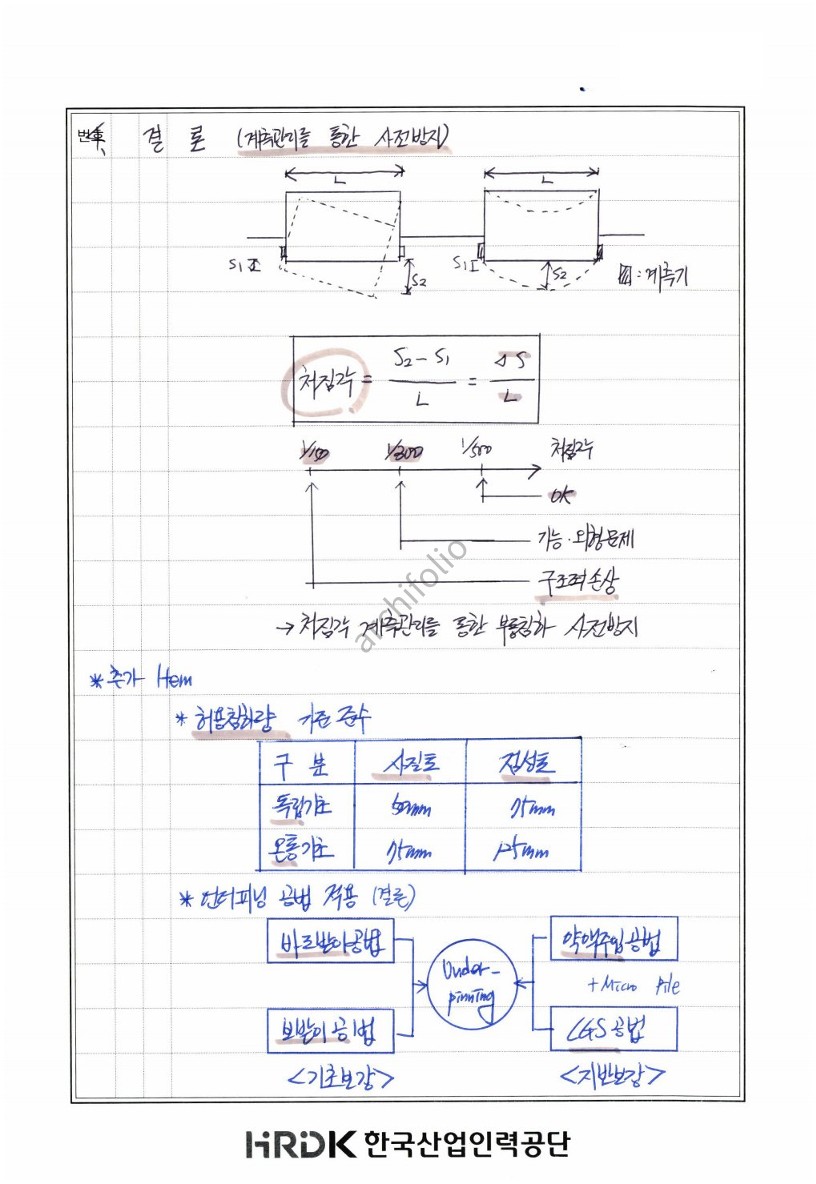 번호 결론 (계측관리를 통한 사전방지)
L L
S1 S2 S1 S2 : 계측기
처짐각 = S2 - S1 / L = ΔS / L
1/150 1/300 1/500 처짐각
OK
기능·외형문제
구조적손상
→ 처짐각 계측관리를 통한 부동침하 사전방지
* 추가 Item
* 허용침하량 기준 준수
구분 사질토 점성토
독립기초 50mm 75mm
온통기초 75mm 125mm
* 언더피닝 공법 적용 (결론)
바로받이공법 약액주입공법
Under-
pinning
+ Micro Pile
보받이공법 LGS공법
<기초보강> <지반보강>
archifolio
HRDK 한국산업인력공단